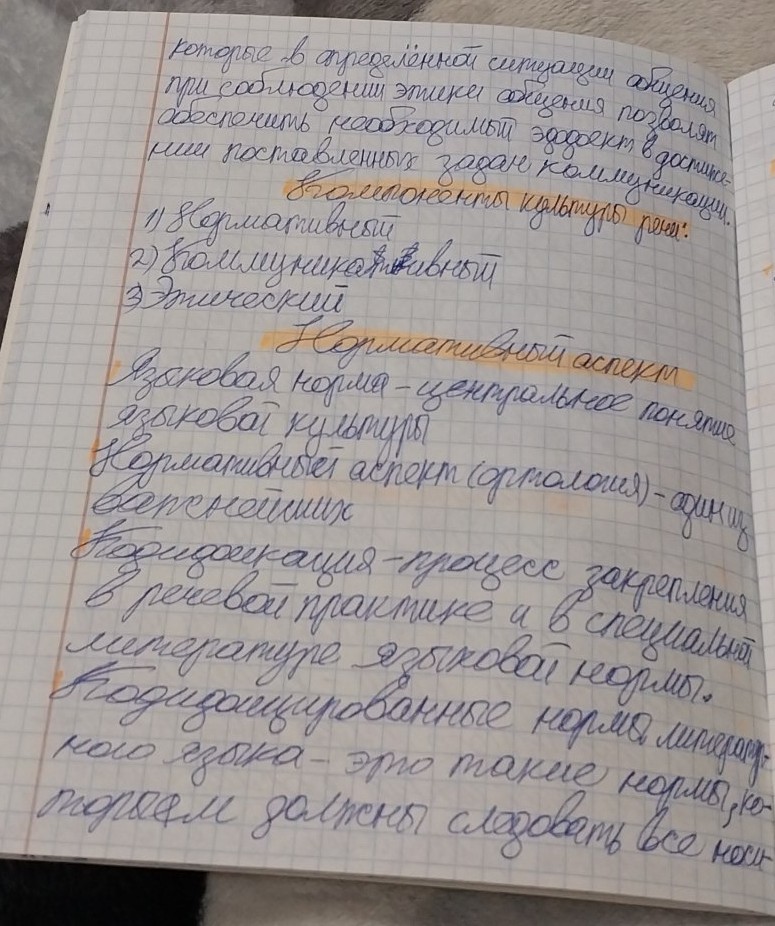 которые в определённой ситуации общения
при соблюдении этики общения позволят
обеспечить необходимый эффект в достиже-
нии поставленных задач коммуникации.
Компоненты культуры речи:
1) Нормативный
2) Коммуникативный
3) Этический
Нормативный аспект
Языковая норма – центральное понятие
языковой культуры
Нормативный аспект (ортология) – один из
важнейших
Кодификация – процесс закрепления
в речевой практике и в специальной
литературе языковой нормы.
Кодифицированные норма литератур-
ного языка – это такие нормы, ко-
торым должны следовать все носи-